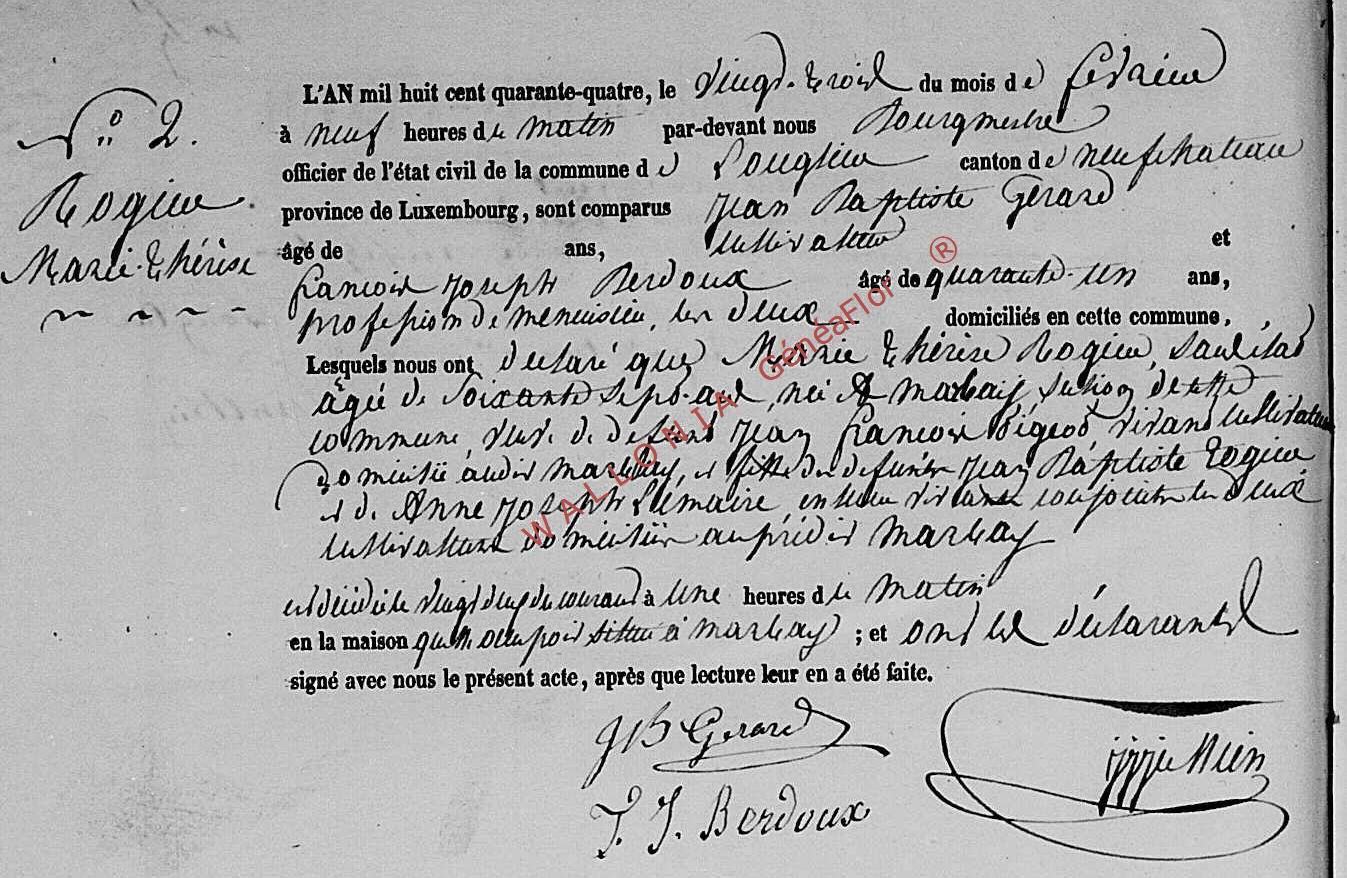 N° 2.
Rogier
Marie-thérèse
L'AN mil huit cent quarante-quatre, le vingt-trois du mois de février
à neuf heures du matin par-devant nous Bourgmestre
officier de l'état civil de la commune de Longlier canton de neufchateau
province de Luxembourg, sont comparus jean Baptiste Gerard
âgé de ans, cultivateur et
francois joseph Berdoux âgé de quarante-un ans,
profession de menuisier, les deux domiciliés en cette commune,
Lesquels nous ont declaré que Marie thérèse Rogier, sans état
âgée de soixante sept ans, née à marbay, section de cette
commune, veuve de defunt jean francois Pigeot, vivant cultivateur
domiciliée audit marbay, et fille des defunts jean Baptiste Rogier
et de Anne joseph Lemaire, en leur vivant conjoints les deux
cultivateurs domiciliés au prédit marbay
est décédée le vingt deux du courant à une heures du matin
en la maison qu'elle occupoit située à marbay ; et ont les déclarants
signé avec nous le présent acte, après que lecture leur en a été faite.
JB Gerard
F. J. Berdoux
WALLONIA GénéaFlor ®